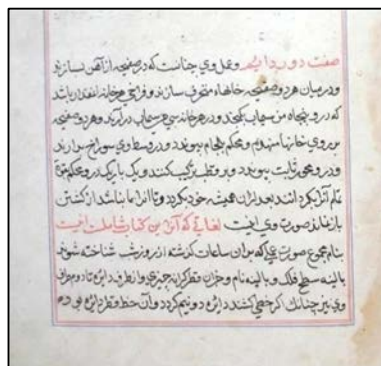 صفت دور دایم وعمل وی چنانست که در صفیحه از آهن بسازند
و در میان هر دو صفیحه خانهاء متحرف سازند و فراخی هر خانه انقدر باشد
که در و پنجاه من سیماب بگنجد و در هر خانه سی من سیماب درآرند و هر دو صفیحه
بر روی خانها نهند و محکم بلحام بپوندد و در وسط وی سوراخ بدارند
و در و محور ثابت بپوندد و بدو قطب ترکیب کنند و یک بار بیک در و محکم
قلم آنرا بگردانند بعد ازان همیشه خود بگردد و تا انرا مانع نباشد از گشتن
باز نماند صورت وی اینست لغاتی که آنرا بدین کتاب شاملست اینست
بنام مجموع صورت علی که بران ساعات گذشته از روز و شب شناخته شوند
بالینه سطح فلک و بالینه نام و خزان قطر کرانه چیزی و از طرف دایره تا دوم طرف
وی نیز چنانک اگر خطی کشند دایره دو نیم گردد و آن خط قطر دایره بود